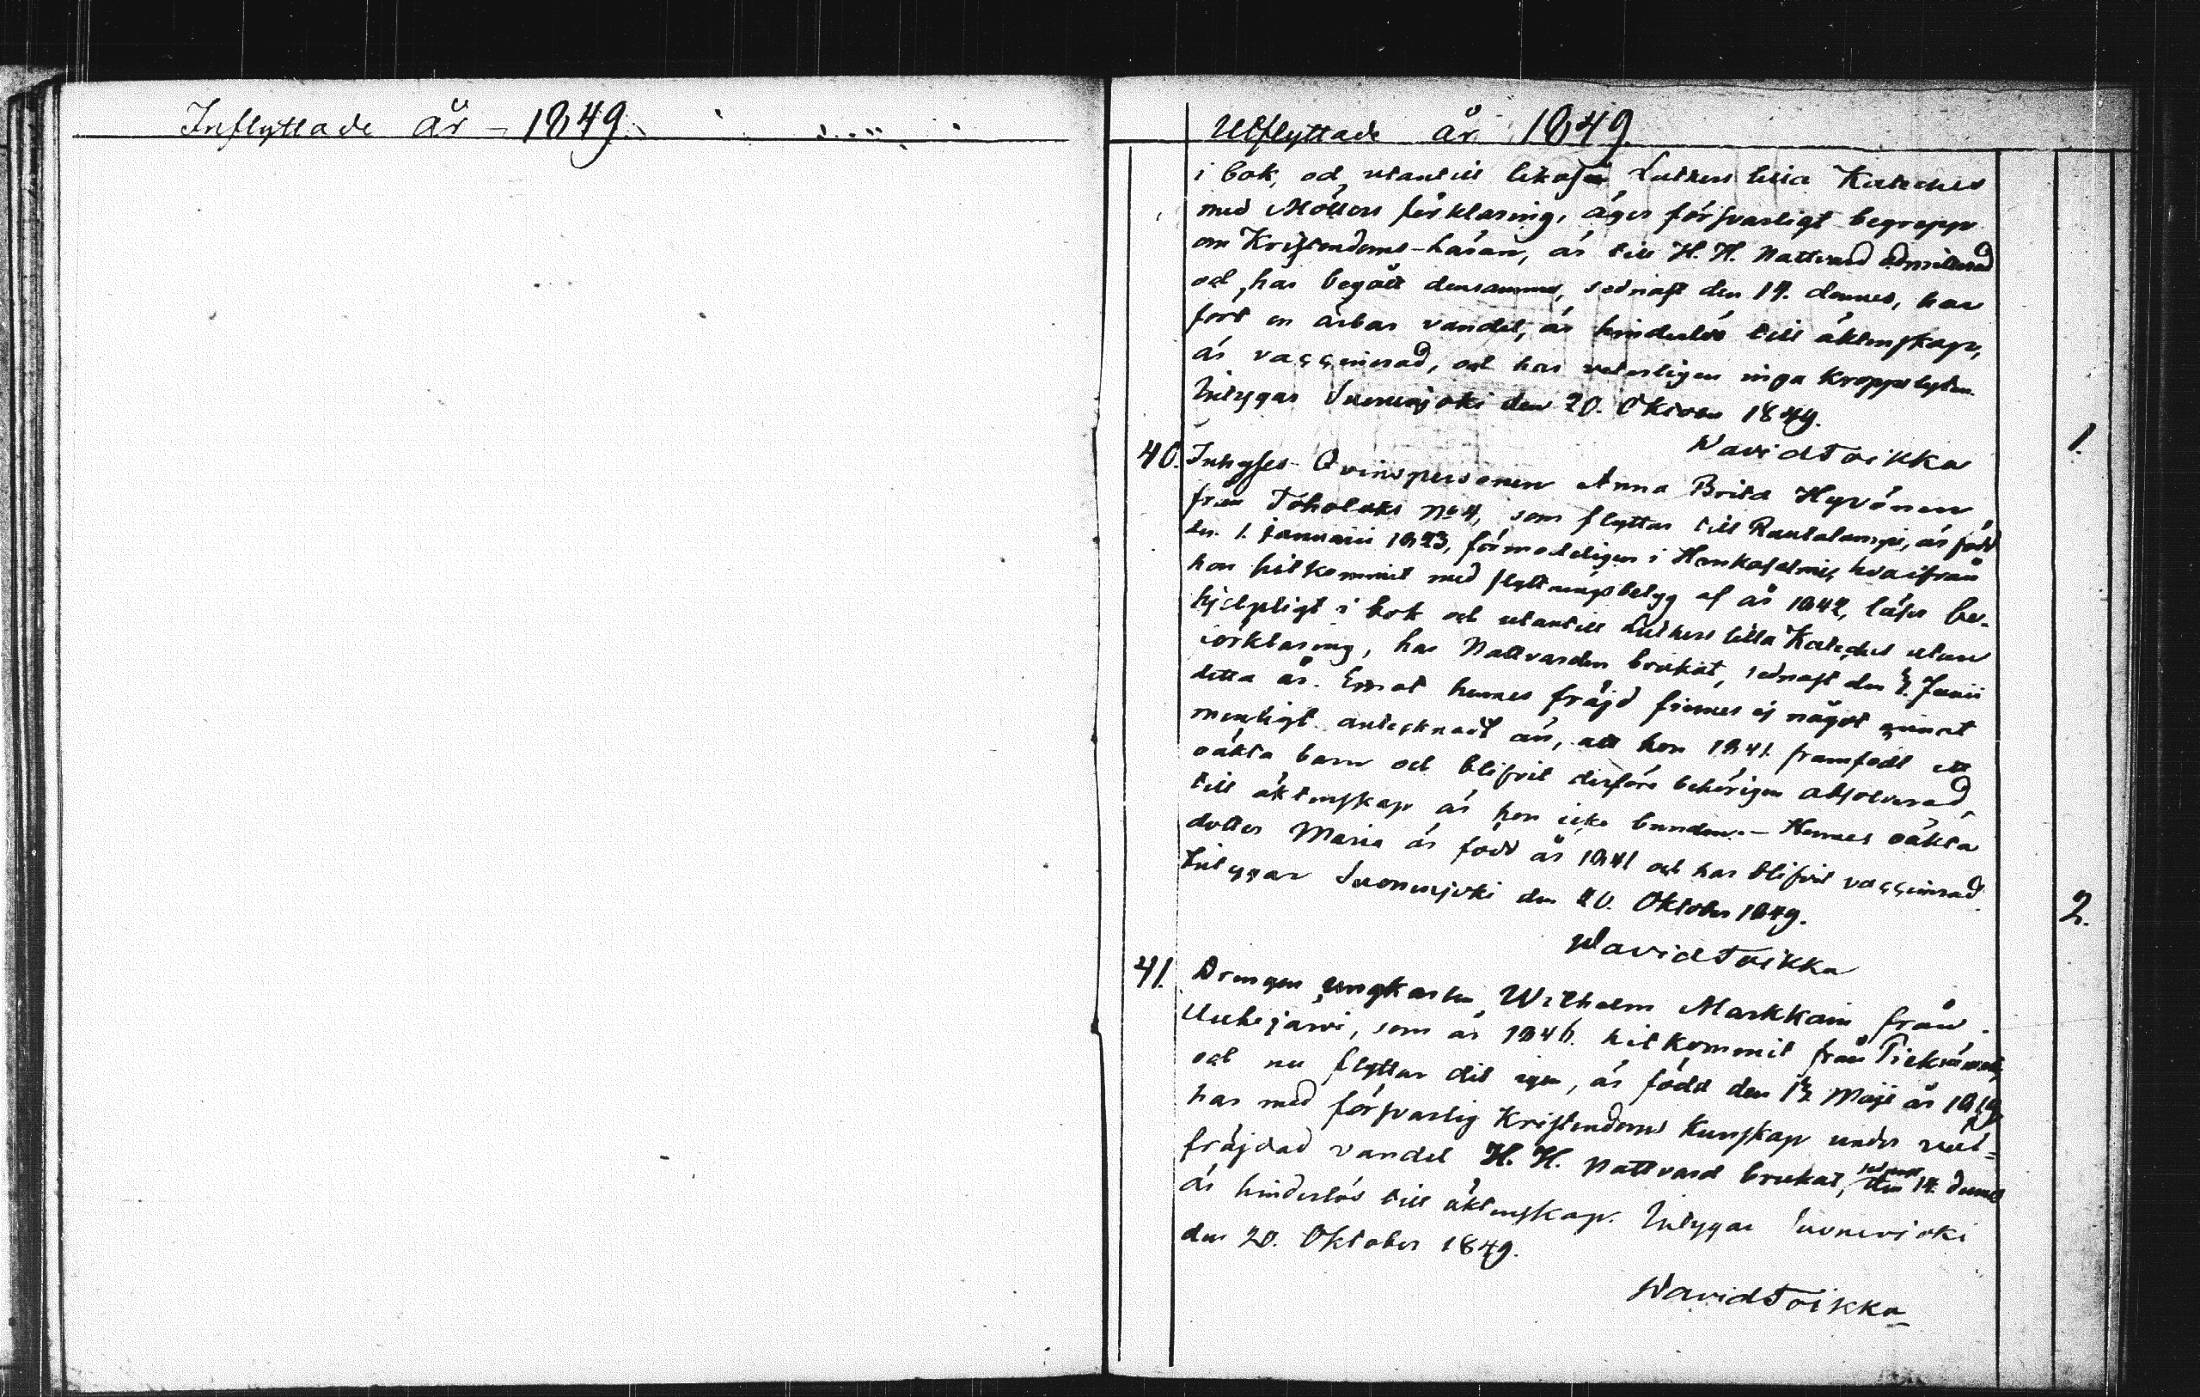 Inflyttade år 1849.
Utflyttade år 1849.
i bok, och utantill likaså Luthers lilla Kateches
med Möllers förklaring, äger försvarligt begrepp
om Kristendoms-läran, är till H. H. Nattvard admitterad
och har begått densamma, sednast den 14. dennes, har
fört en ärbar vandel, är hinderlös till äktenskap,
är vaccinerad, och har veterligen inga kroppslyten.
Intygar Suonenjoki den 20. Oktober 1849.
David Toikka
1.
40. Inhyses Qvinspersonen Anna Brita Hyvönen
från Toholaks No 4, som flyttar till Rautalampi, är född
den 1. januarii 1823, förmodeligen i Hankasalmi, hvarifrån
hon hitkommit med flyttningsbetyg af år 1842, läser be-
hjelpligt i bok och utantill Luthers lilla Kateches utan
förklaring, har Nattvarden brukat, sednast den Junii
detta år. Emot hennes fräjd finnes ej något annat
menligt antecknadt än, att hon 1841 framfödt ett
oäkta barn och blifvit derföre behörigen absolverad,
till äktenskap är hon icke bunden. – Hennes oäkta
dotter Maria är född år 1841 och har blifvit vaccinerad.
Intygar Suonenjoki den 20. Oktober 1849.
David Toikka
2.
41. Drengen ungkarlen Wilhelm Markkain från
som år 1846. hitkommit från Pieksämäki,
och nu flyttar dit igen, är född den Maji år
har med försvarlig Kristendoms Kunskap under väl-
fräjdad vandel H. H. Nattvard brukat, sednast den 14. dennes
är hinderlös till äktenskap. Intygar Suonenjoki
den 20. Oktober 1849.
David Toikka